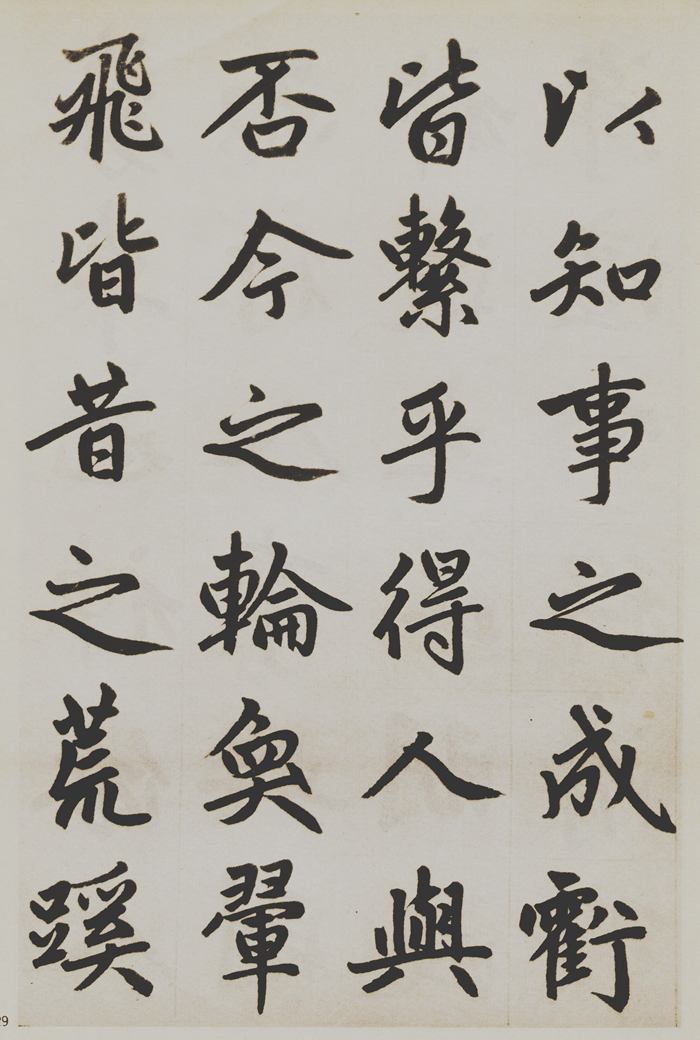 以知事之成虧
皆繫乎得人與
否今之輪奐翬
飛皆昔之荒蹊
29